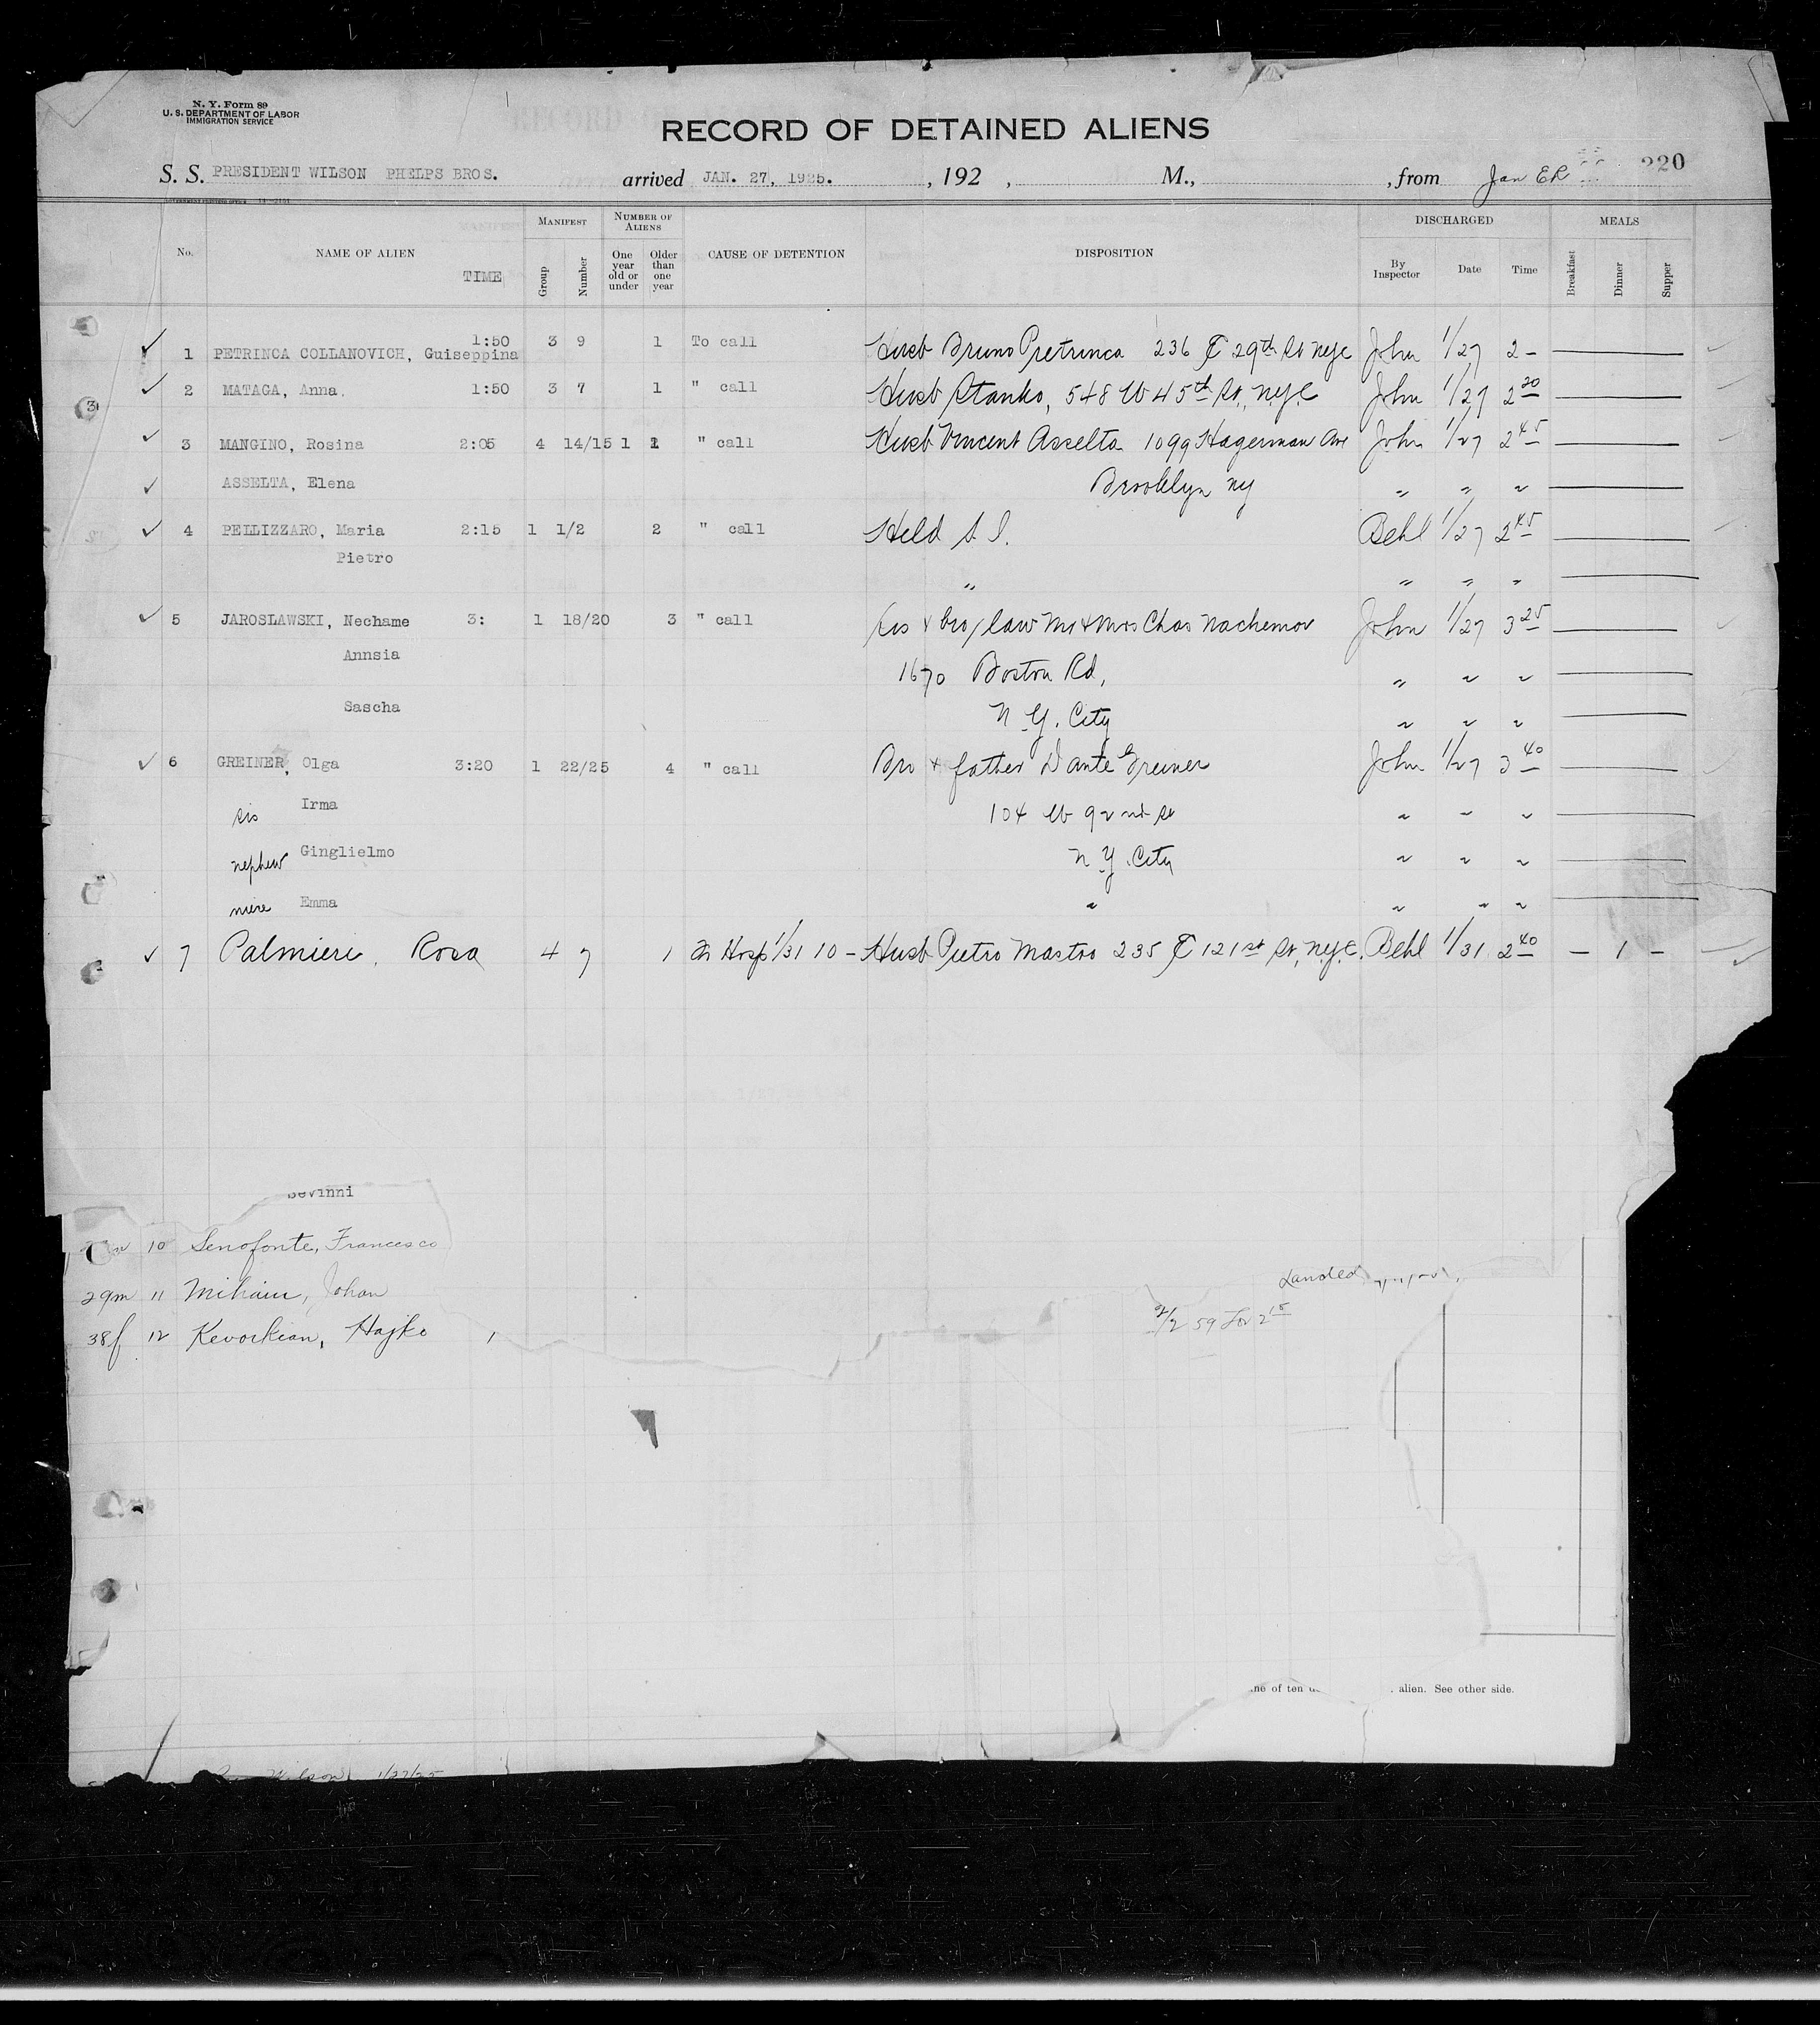 N. Y. Form 89
U. S. DEPARTMENT OF LABOR
IMMIGRATION SERVICE
RECORD OF DETAINED ALIENS
220
S. S. PRESIDENT WILSON PHELPS BROS. arrived JAN. 27, 1925. , 192 , M., , from Jan
No. NAME OF ALIEN TIME MANIFEST Group Number NUMBER OF ALIENS One year old or under Older than one year CAUSE OF DETENTION DISPOSITION DISCHARGED By Inspector Date Time MEALS Breakfast Dinner Supper
1 PETRINCA COLLANOVICH, Guiseppina 1:50 3 9 1 To call Husb Bruno Pretrinca 236 E 29th St NYC John 1/27 2 -
2 MATAGA, Anna. 1:50 3 7 1 " call Husb Stanko, 548 W 45th St., N.Y.C John 1/27 2 20
3 MANGINO, Rosina 2:05 4 14/15 1 1 " call Husb Vincent Asselta 1099 Hagerman Ave John 1/27 2 45
ASSELTA, Elena Brooklyn NY " " "
4 PELLIZZARO, Maria 2:15 1 1/2 2 " call Held S I. Behl 1/27 2 45
Pietro
" " " "
5 JAROSLAWSKI, Nechame 3: 1 18/20 3 " call sis & bro/law Mr & Mrs Chas Nachemov John 1/27 3 25
Annsia 1670 Boston Rd, " " "
Sascha N.Y. City " " "
6 GREINER, Olga 3:20 1 22/25 4 " call Bro & father Dante Greiner John 1/27 3 40
sis Irma 104 W 92nd St " " "
nephew Ginglielmo N.Y. City " " "
niece Emma " " " "
7 Palmieri, Rosa 4 7 1 Hosp 1/31 10 - Husb Pietro Mastro 235 E 121st St, N.Y.C. Behl 1/31 2 40 - 1 -
10 Senofonte, Francesco
29m 11 Mihaiu, Johan
Landed
38f 12 Kevorkian, Hajko 1
2/2 59 2 15
ne of ten alien. See other side.
Wilson 1/27/25